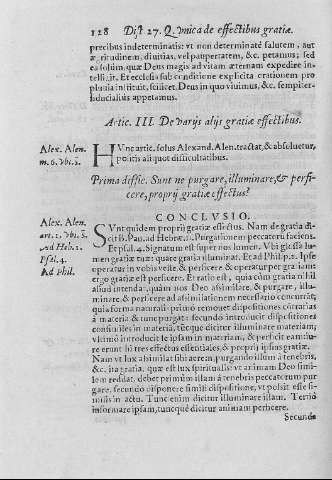 128 Dist 27. Q. vnica de effectibus gratiæ.
precibus indeterminatis: vt non determinatè salutem, aut
ægritudinem, diuitias, vel paupertatem, &c. petamus; sed
ea solùm, quæ Deus magis ad vitam æternam expedire in-
telligit. Et ecclesia sub conditione explicita orationem pro
pluuia instituit, scilicet, Deus in quo viuimus, &c. sempiter-
fiducialiùs appetamus.
Artic. III. De varijs alijs gratiæ effectibus.
Alex. Alen.
m. 6. vbi. s.
HVnc artic. solus Alexand. Alen. tractat, & absoluetur,
positis aliquot difficultatibus.
Prima diffic. Sunt ne purgare, illuminare, & perfi-
cere, proprij gratiæ effectus?
CONCLVSIO.
Alex. Alen.
art. 1. vbi. s.
ad Heb. 1.
Psal. 4.
Ad Phil.
SVnt quidem proprij gratiæ effectus. Nam de gratia di-
cit B. Pau. ad Hebræ. 1. Purgationem peccatorum faciens.
Et psal. 4. Signatum est super nos lumen. Vbi glossa lu-
men gratiæ nuæ: quare gratia illuminat. Et ad Phil. 2. Ipse
operatur in vobis velle, & perficere & operatur per gratiam:
ergo gratiæ est perficere. Et ratio est, quia cùm gratia nihil
aliud intendat, quàm nos Deo assimilare, & purgare, illu-
minare, & perficere ad assimilationem necessariò concurrat;
quia forma naturalis primò remouet dispositiones contrarias
à materia & tunc purgat: secundò introducit dispositiones
consimiles in materia, tuncque dicitur illuminare materiam;
vltimò introducit se ipsam in materiam, & perficit eam: fue-
re erunt hi tres effectus essentiales, & proprij ipsius gratiæ.
Nam vt lux assimilat sibi aerem, purgando illum à tenebris,
&c. ita gratia, quæ est lux spiritualis: vt animam Deo simi-
lem reddat, debet primùm illam à tenebris peccatorum pur-
gare, secundò disponere simili dispositione, vt potest esse si-
milis in actu. Tunc enim dicitur illuminare illam. Tertiò
informare ipsam, tuncque dicitur animam perficere.
Secunda